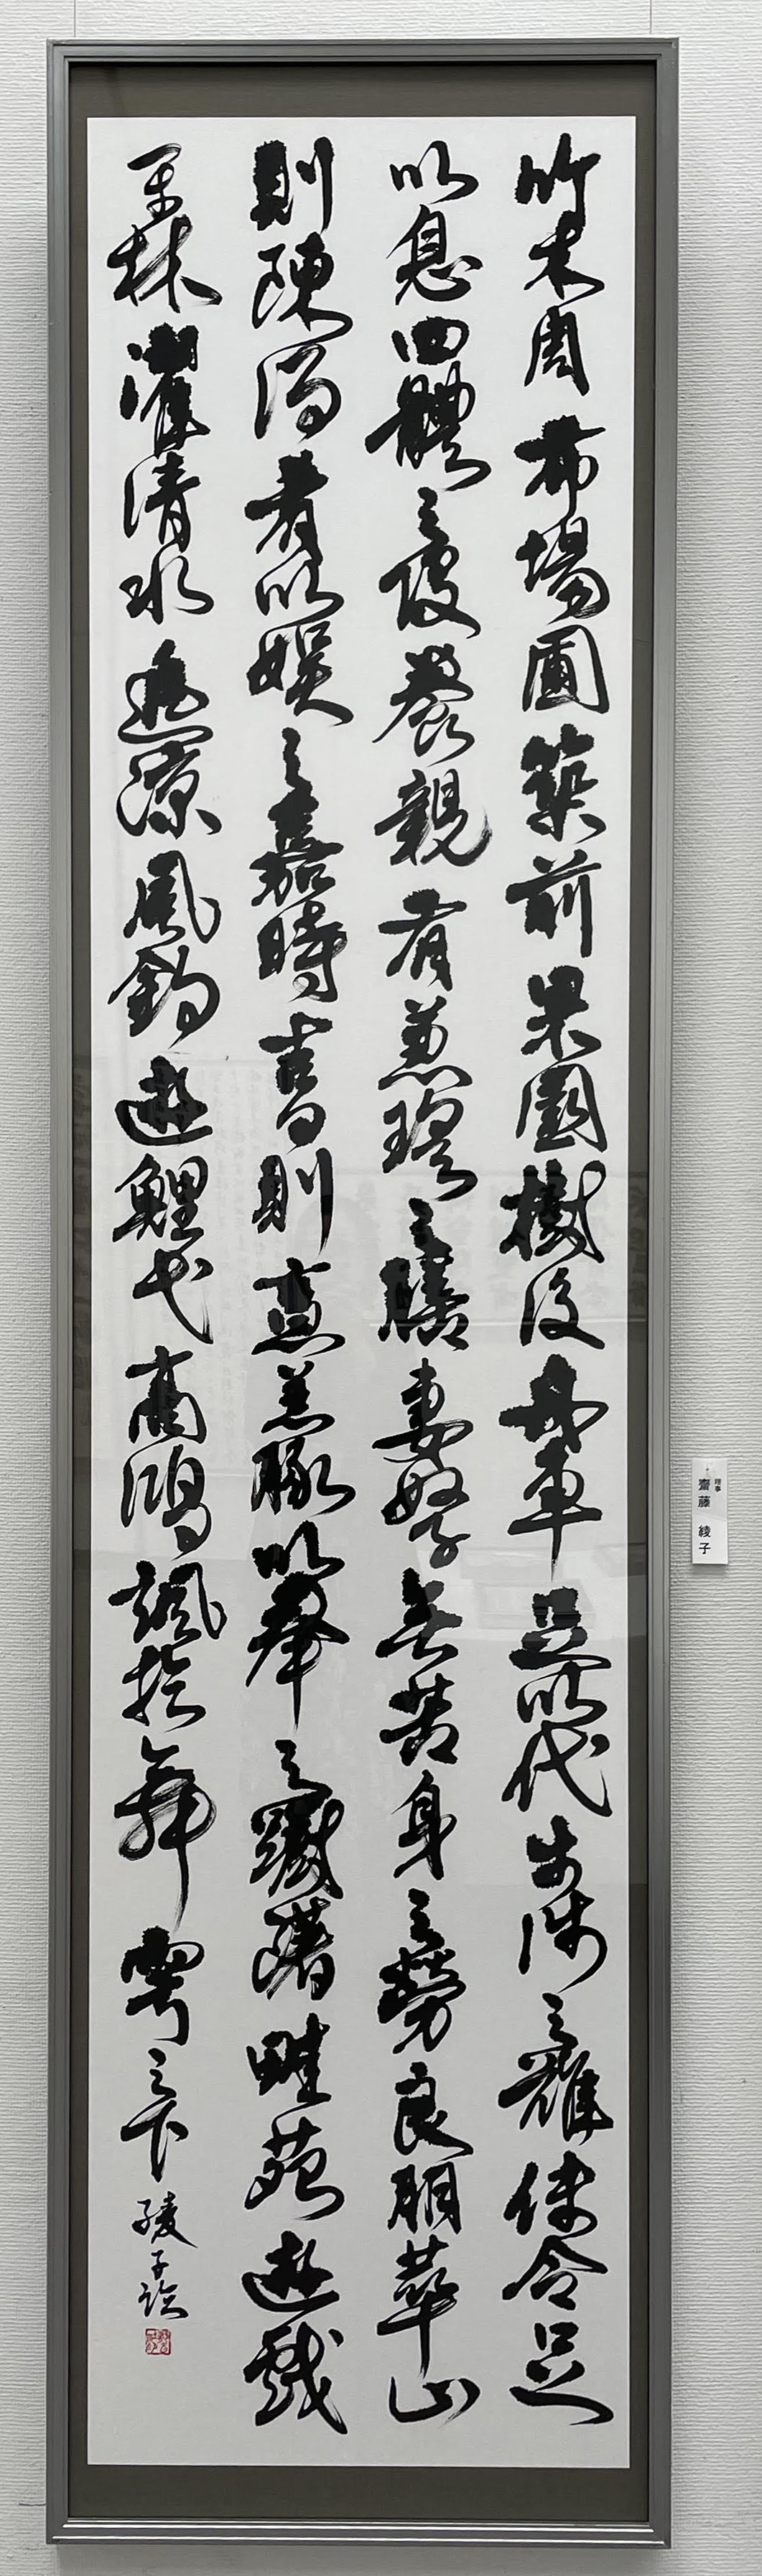 竹木周布場圃築前果園樹後舟車足以代步涉之難使令足
以息四體之役養親有兼珍之膳妻孥無苦身之勞良朋萃止
則陳酒肴以娯之嘉時吉日則亨羔豚以奉之躕躇畦苑遊戲
平林濯清水追涼風釣遊鯉弋高鴻諷於舞雩之下
綾子
理事
齋藤 綾子